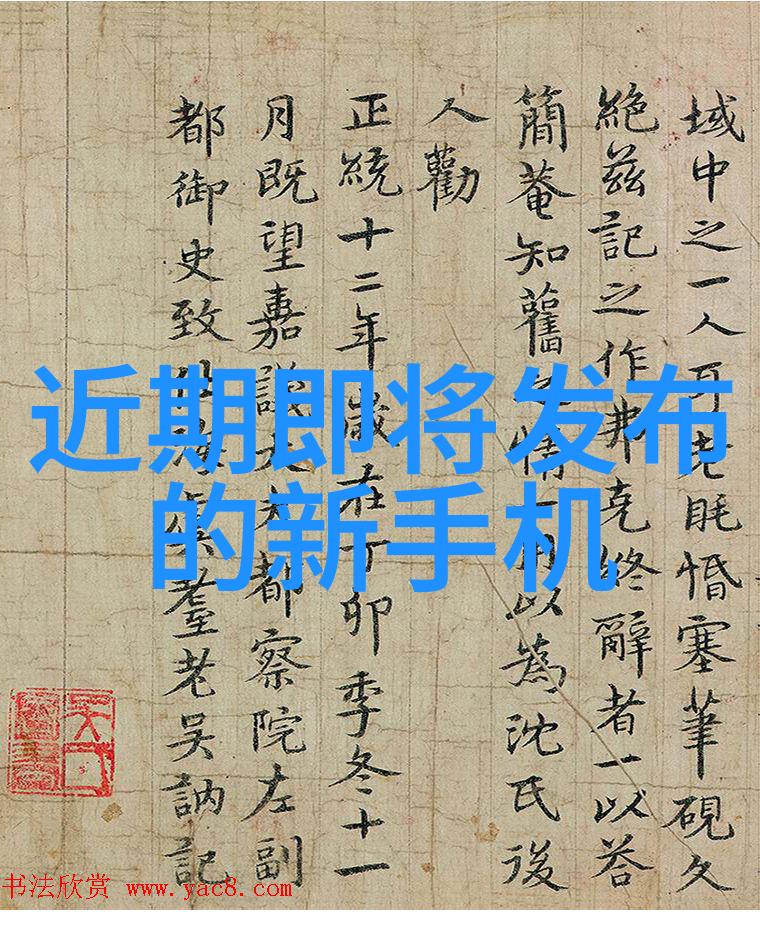 域中之一人耳老眊惛塞筆硯久
絶茲記之作弗克終辭者一以荅
簡菴知舊之情一用以為沈氏後
人勸
正統十二年歲在丁卯季冬十一
月既望嘉議大夫都察院左副
都御史致仕海虞耄老吳訥記
近期即将发布
的新手机
书法欣赏 www.yac8.com